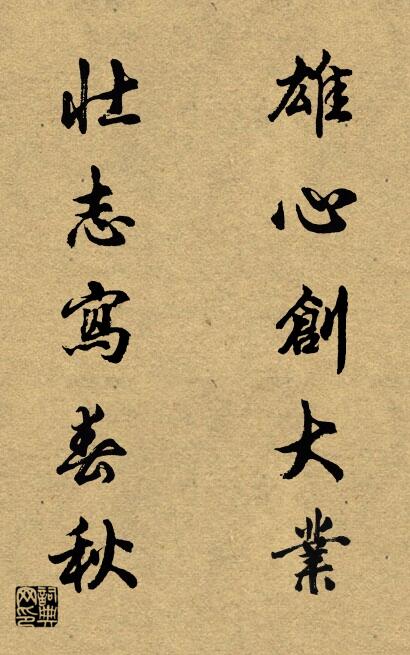 雄心創大業
壯志寫春秋
詞典网印